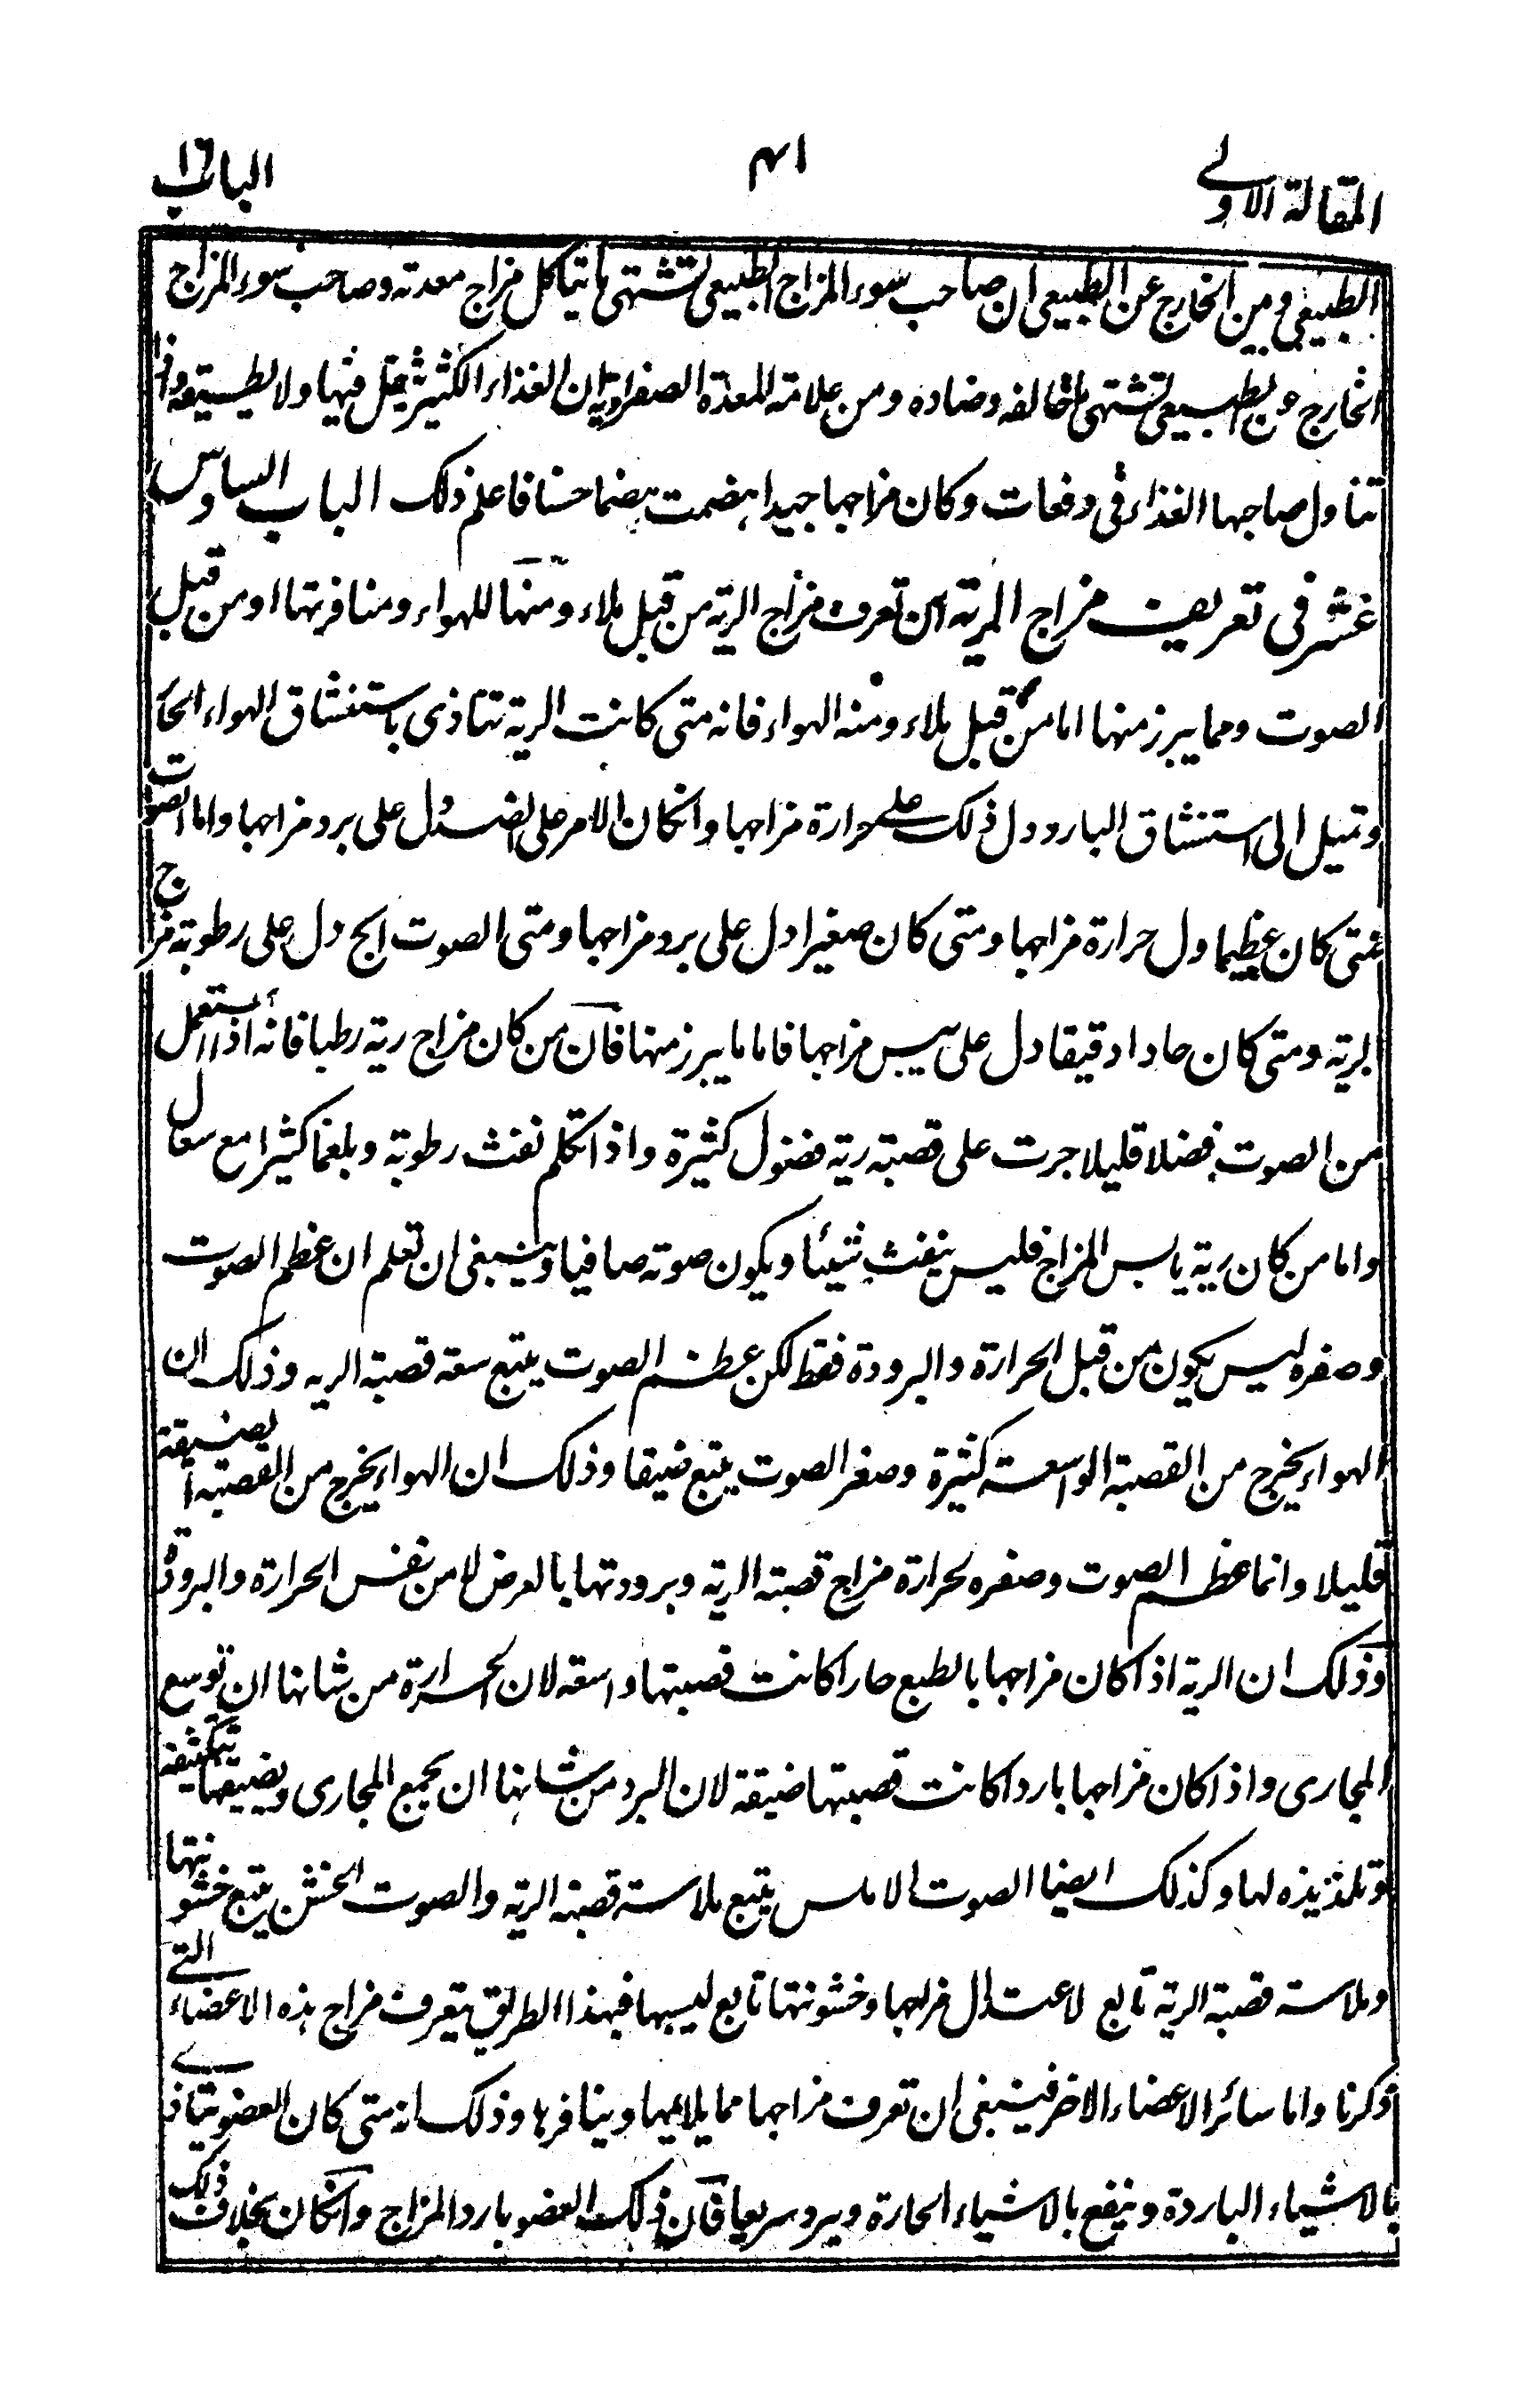 المقالة الاولى ٤١ الباب ١٦
الطبيعى وبين الخارج عن الطبيعى ان صاحب سوء المزاج الطبيعى تشتهى ما يتاكل مزاج معدته وصاحب سوء المزاج
الخارج عن الطبيعى تشتهى ما خالفه وضاده ومن علامته المعدة الصفراوية ان الغذاء الكثير يثقل فيها ولا يطيقه واذا
تناول صاحبها الغذاء فى دفعات وكان مزاجها جيدا هضمت هضما حسنا فاعلم ذلك الباب السادس
عشر فى تعريف مزاج الرية ان تعرف مزاج الرية من قبل ملاءمتها للهواء ومنافرتها او من قبل
الصوت ومما يبرز منها اما من قبل ملاءمته الهواء فانه متى كانت الرية تتاذى باستنشاق الهواء الحار
وتميل الى استنشاق البارد دل ذلك على حرارة مزاجها وانكان الامر على الضد دل على برد مزاجها واما الصوت
فمتى كان عظيما دل حرارة مزاجها ومتى كان صغيرا دل على برد مزاجها ومتى الصوت ابح دل على رطوبة مزاج
الرية ومتى كان حادا دقيقا دل على يبس مزاجها فاما ما يبرز منها فان من كان مزاج رية رطبا فانه اذا استعمل
من الصوت فضلا قليلا جرت على قصبة رية فضول كثيرة واذا تكلم نفث رطوبة وبلغما كثيرا مع سعال
واما من كان رية يابس المزاج فليس ينفث شيئا ويكون صوته صافيا وينبغى ان تعلم ان عظم الصوت
وصغره ليس يكون من قبل الحرارة والبرودة فقط لكن عظم الصوت يتبع سعة قصبة الريه وذلك ان
الهواء يخرج من القصبة الواسعة كثيرة وصغر الصوت يتبع ضيقا وذلك ان الهواء يخرج من القصبة الضيقة
قليلا وانما عظم الصوت وصغره لحرارة مزاج قصبة الرية وبرودتها بالعرض لا من نفس الحرارة والبرودة
وذلك ان الرية اذا كان مزاجها بالطبع حارا كانت قصبتها واسعه لان الحرارة من شانها ان توسع
المجارى واذا كان مزاجها باردا كانت قصبتها ضيقة لان البرد من شانها ان يجمع المجارى ويضيقها بتكثيفه
لها وكذلك ايضا الصوت الاملس يتبع ملاسة قصبة الرية والصوت الخشن يتبع خشونتها
وملاسة قصبة الرية تابع لاعتدال مزاجها وخشونتها تابع ليبسها فبهذا الطريق يتعرف مزاج هذه الاعضاء التى
ذكرنا واما سائر الاعضاء الاخر فينبغى ان تعرف مزاجها مما يلايمها وينافرها وذلك انه متى كان العضو يتاذى
بالاشياء الباردة وينفع بالاشياء الحارة ويبرد سريعا فان ذلك العضو بارد المزاج وانكان بخلاف ذلك